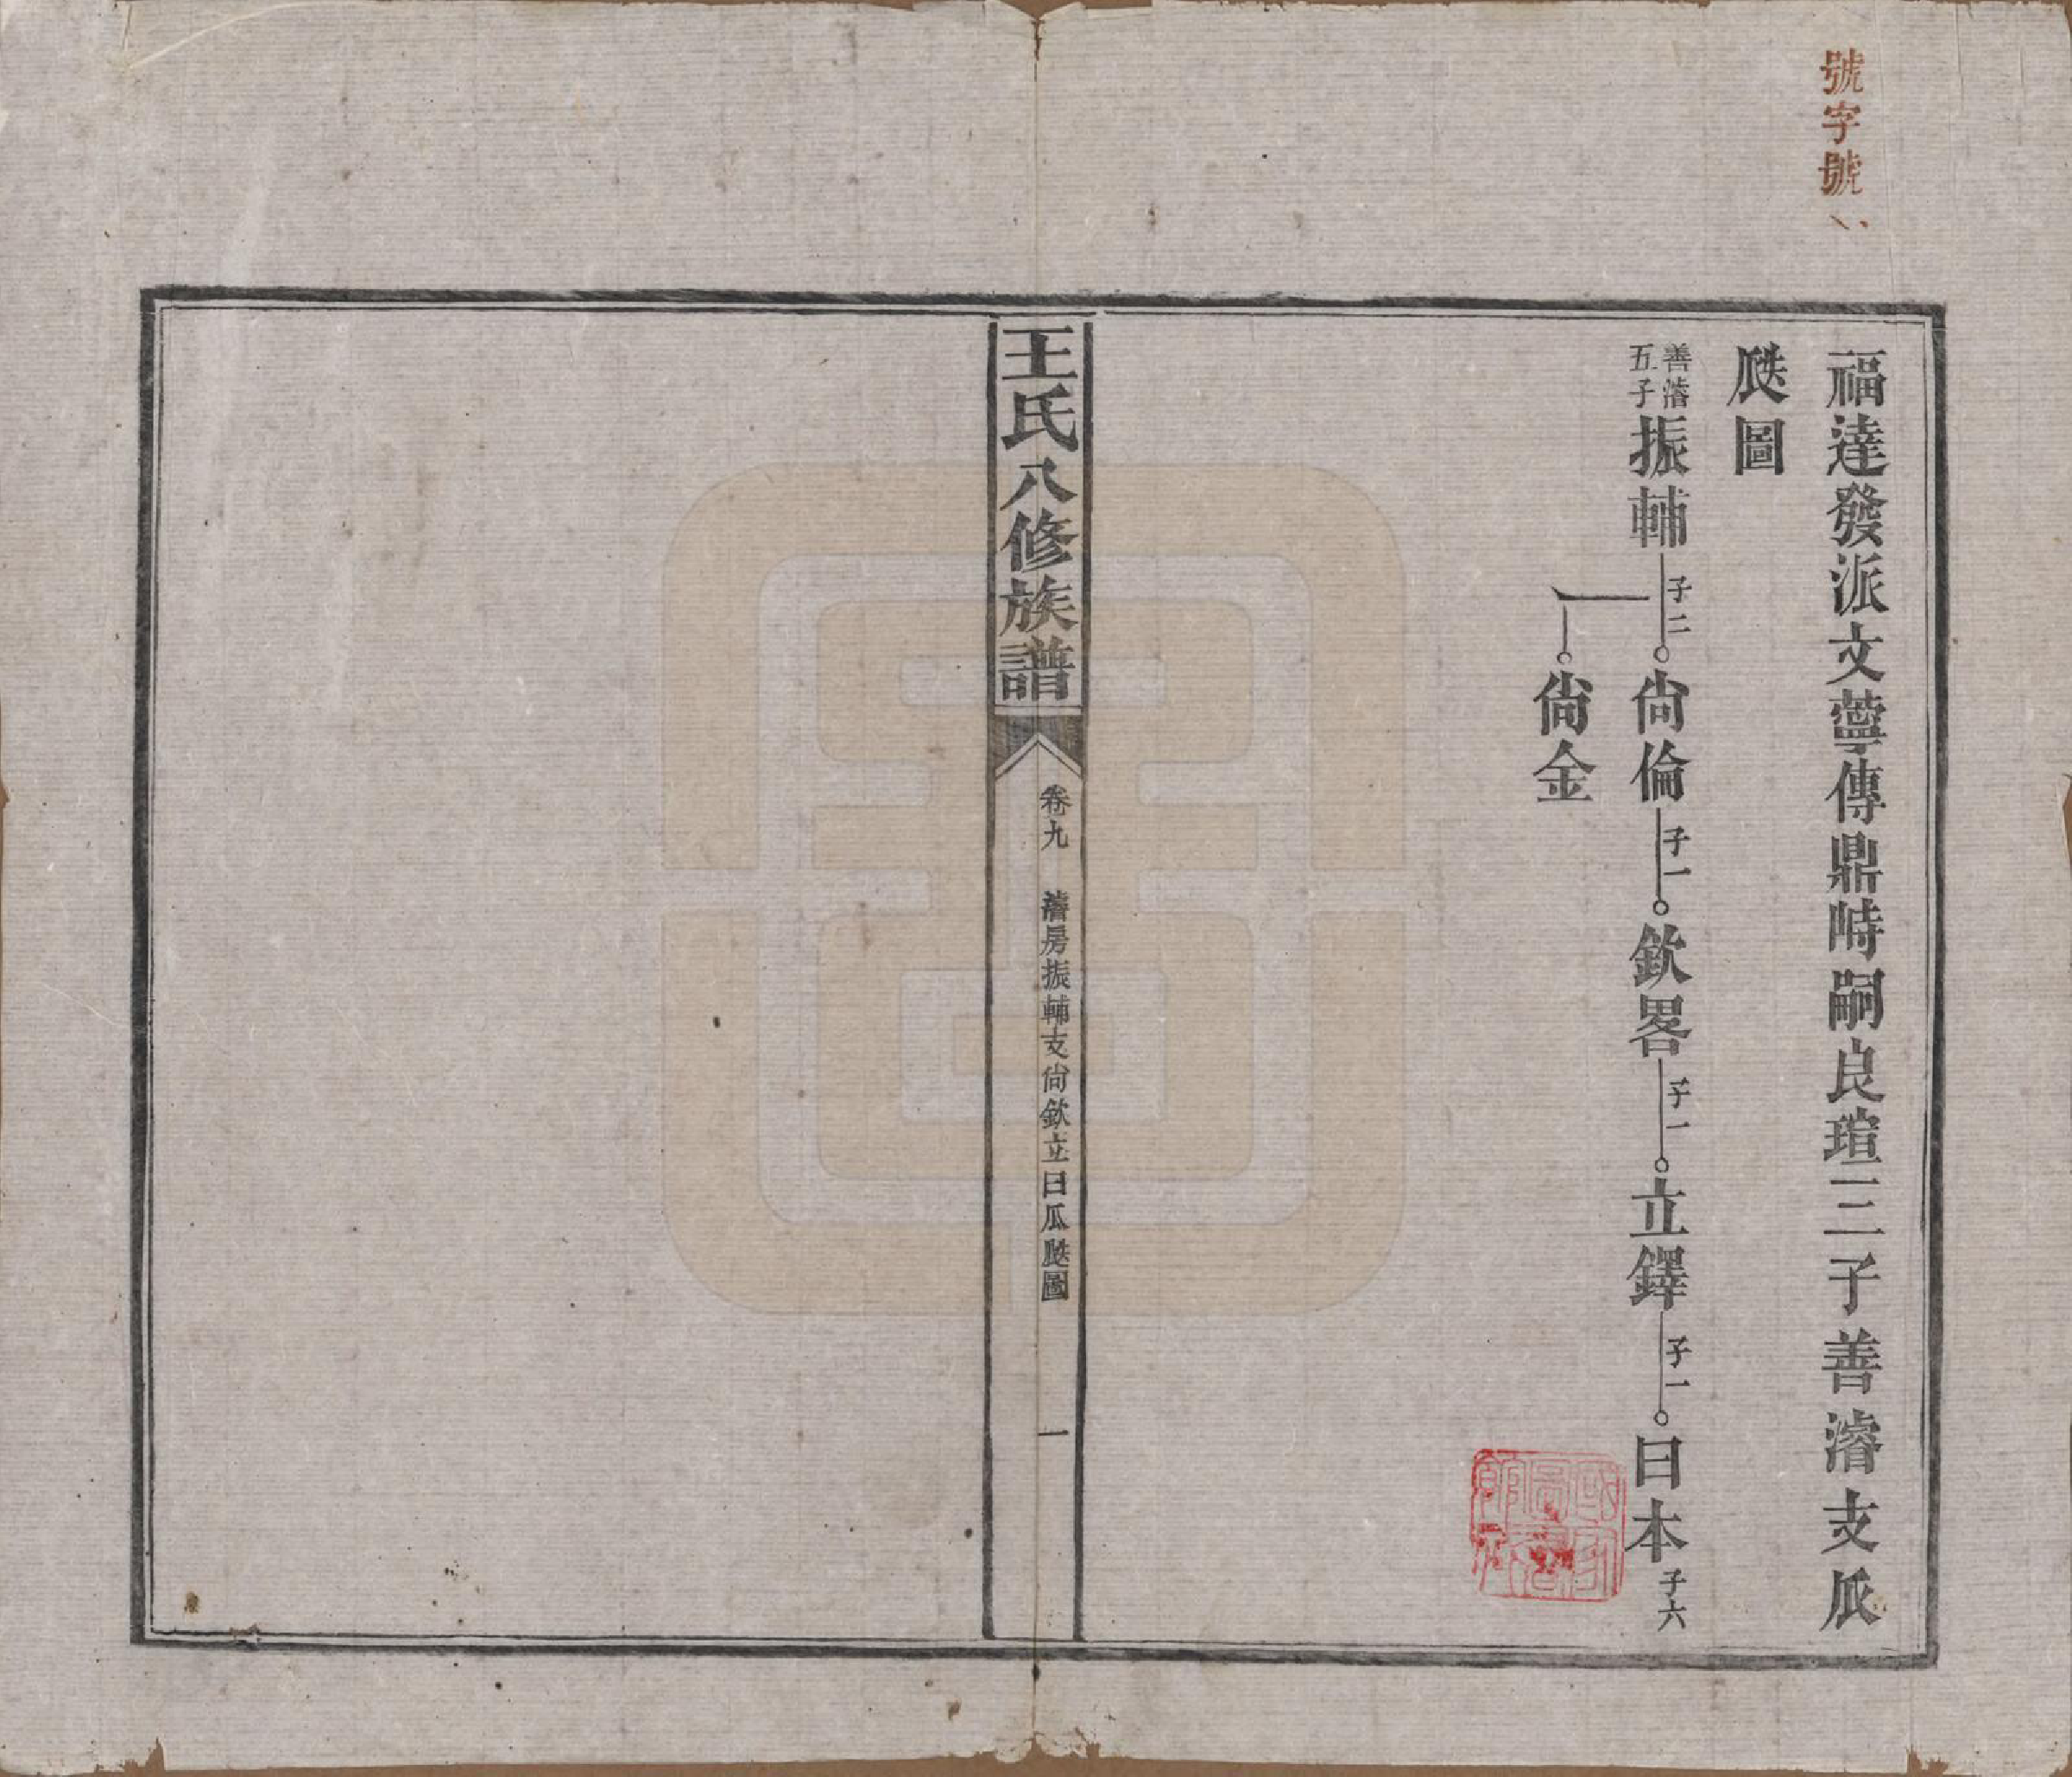 號字號
福達發派文薴傳鼎時嗣良瑄三子善濬支瓜
瓞圖
善濬五子振輔 子二 尙倫 子一 欽畧 子一 立鐸 子一 曰本 子六
尙金
王氏八修族譜
卷九 濬房振輔支尙欽立曰瓜瓞圖 一